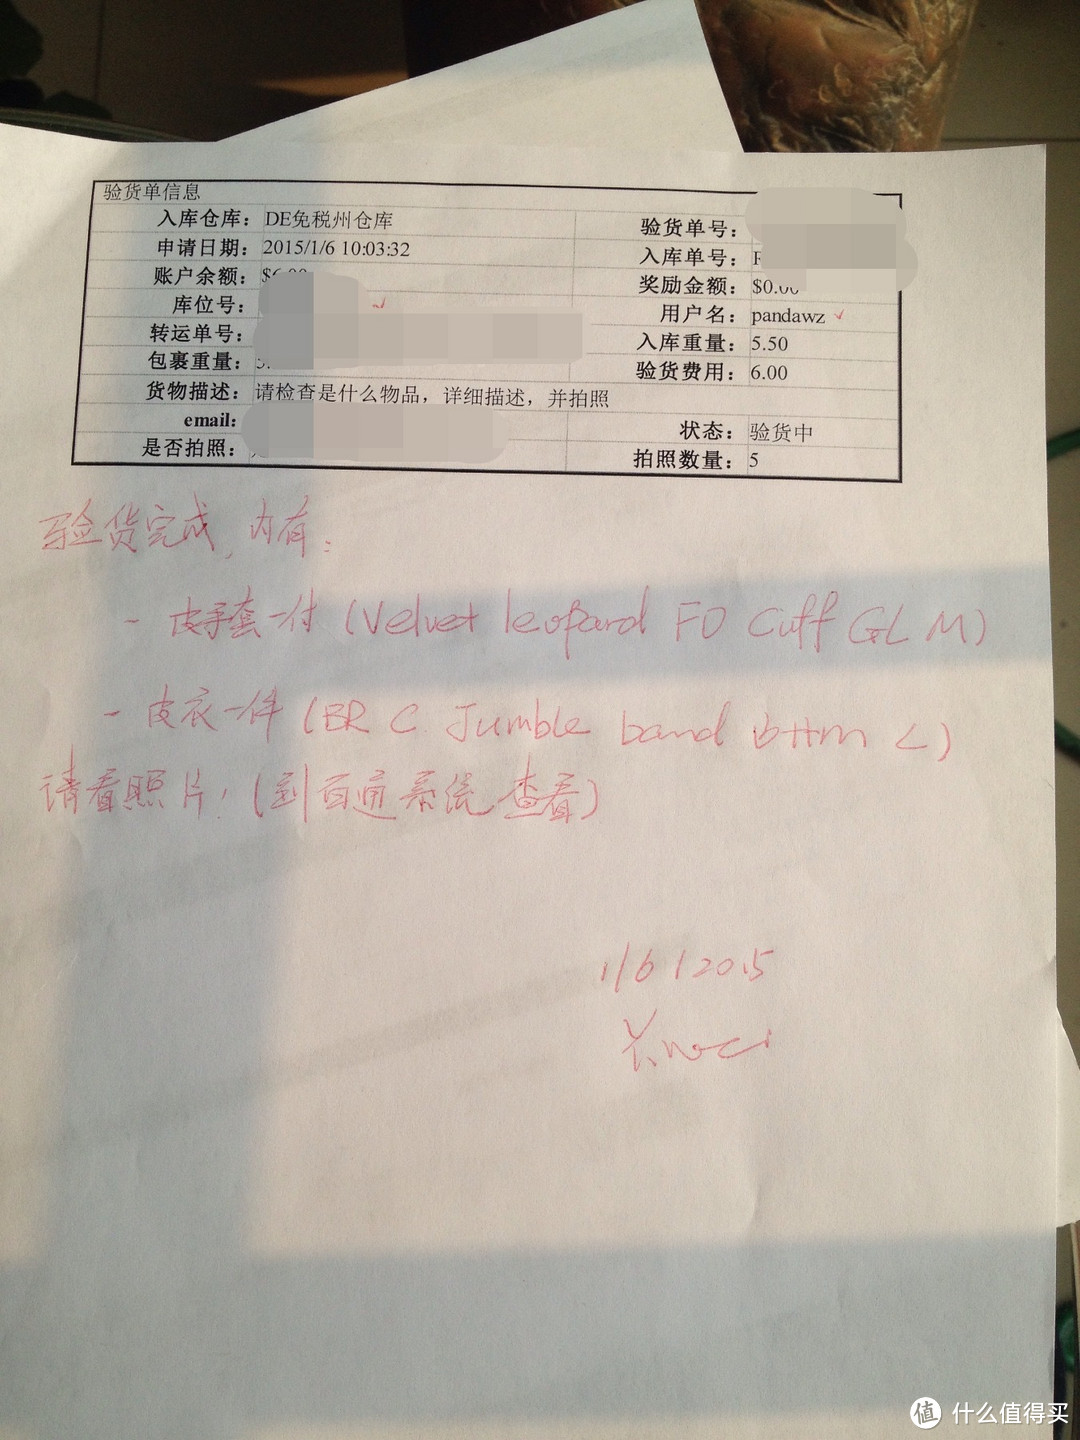 验货单信息
入库仓库： DE免税州仓库 验货单号：
申请日期： 2015/1/6 10:03:32 入库单号：
账户余额： 奖励金额： $0.00
库位号： 用户名： pandawz
转运单号： 入库重量： 5.50
包裹重量： 验货费用： 6.00
货物描述： 请检查是什么物品，详细描述，并拍照
email: 状态： 验货中
是否拍照： 拍照数量： 5
验货完成，内有：
- 皮手套一付 (Velvet leopard FO Cuff GL M)
- 皮衣一件 (BR C Jumble band L)
请看照片，(到百通系统查看)
1/6/2015
值 什么值得买